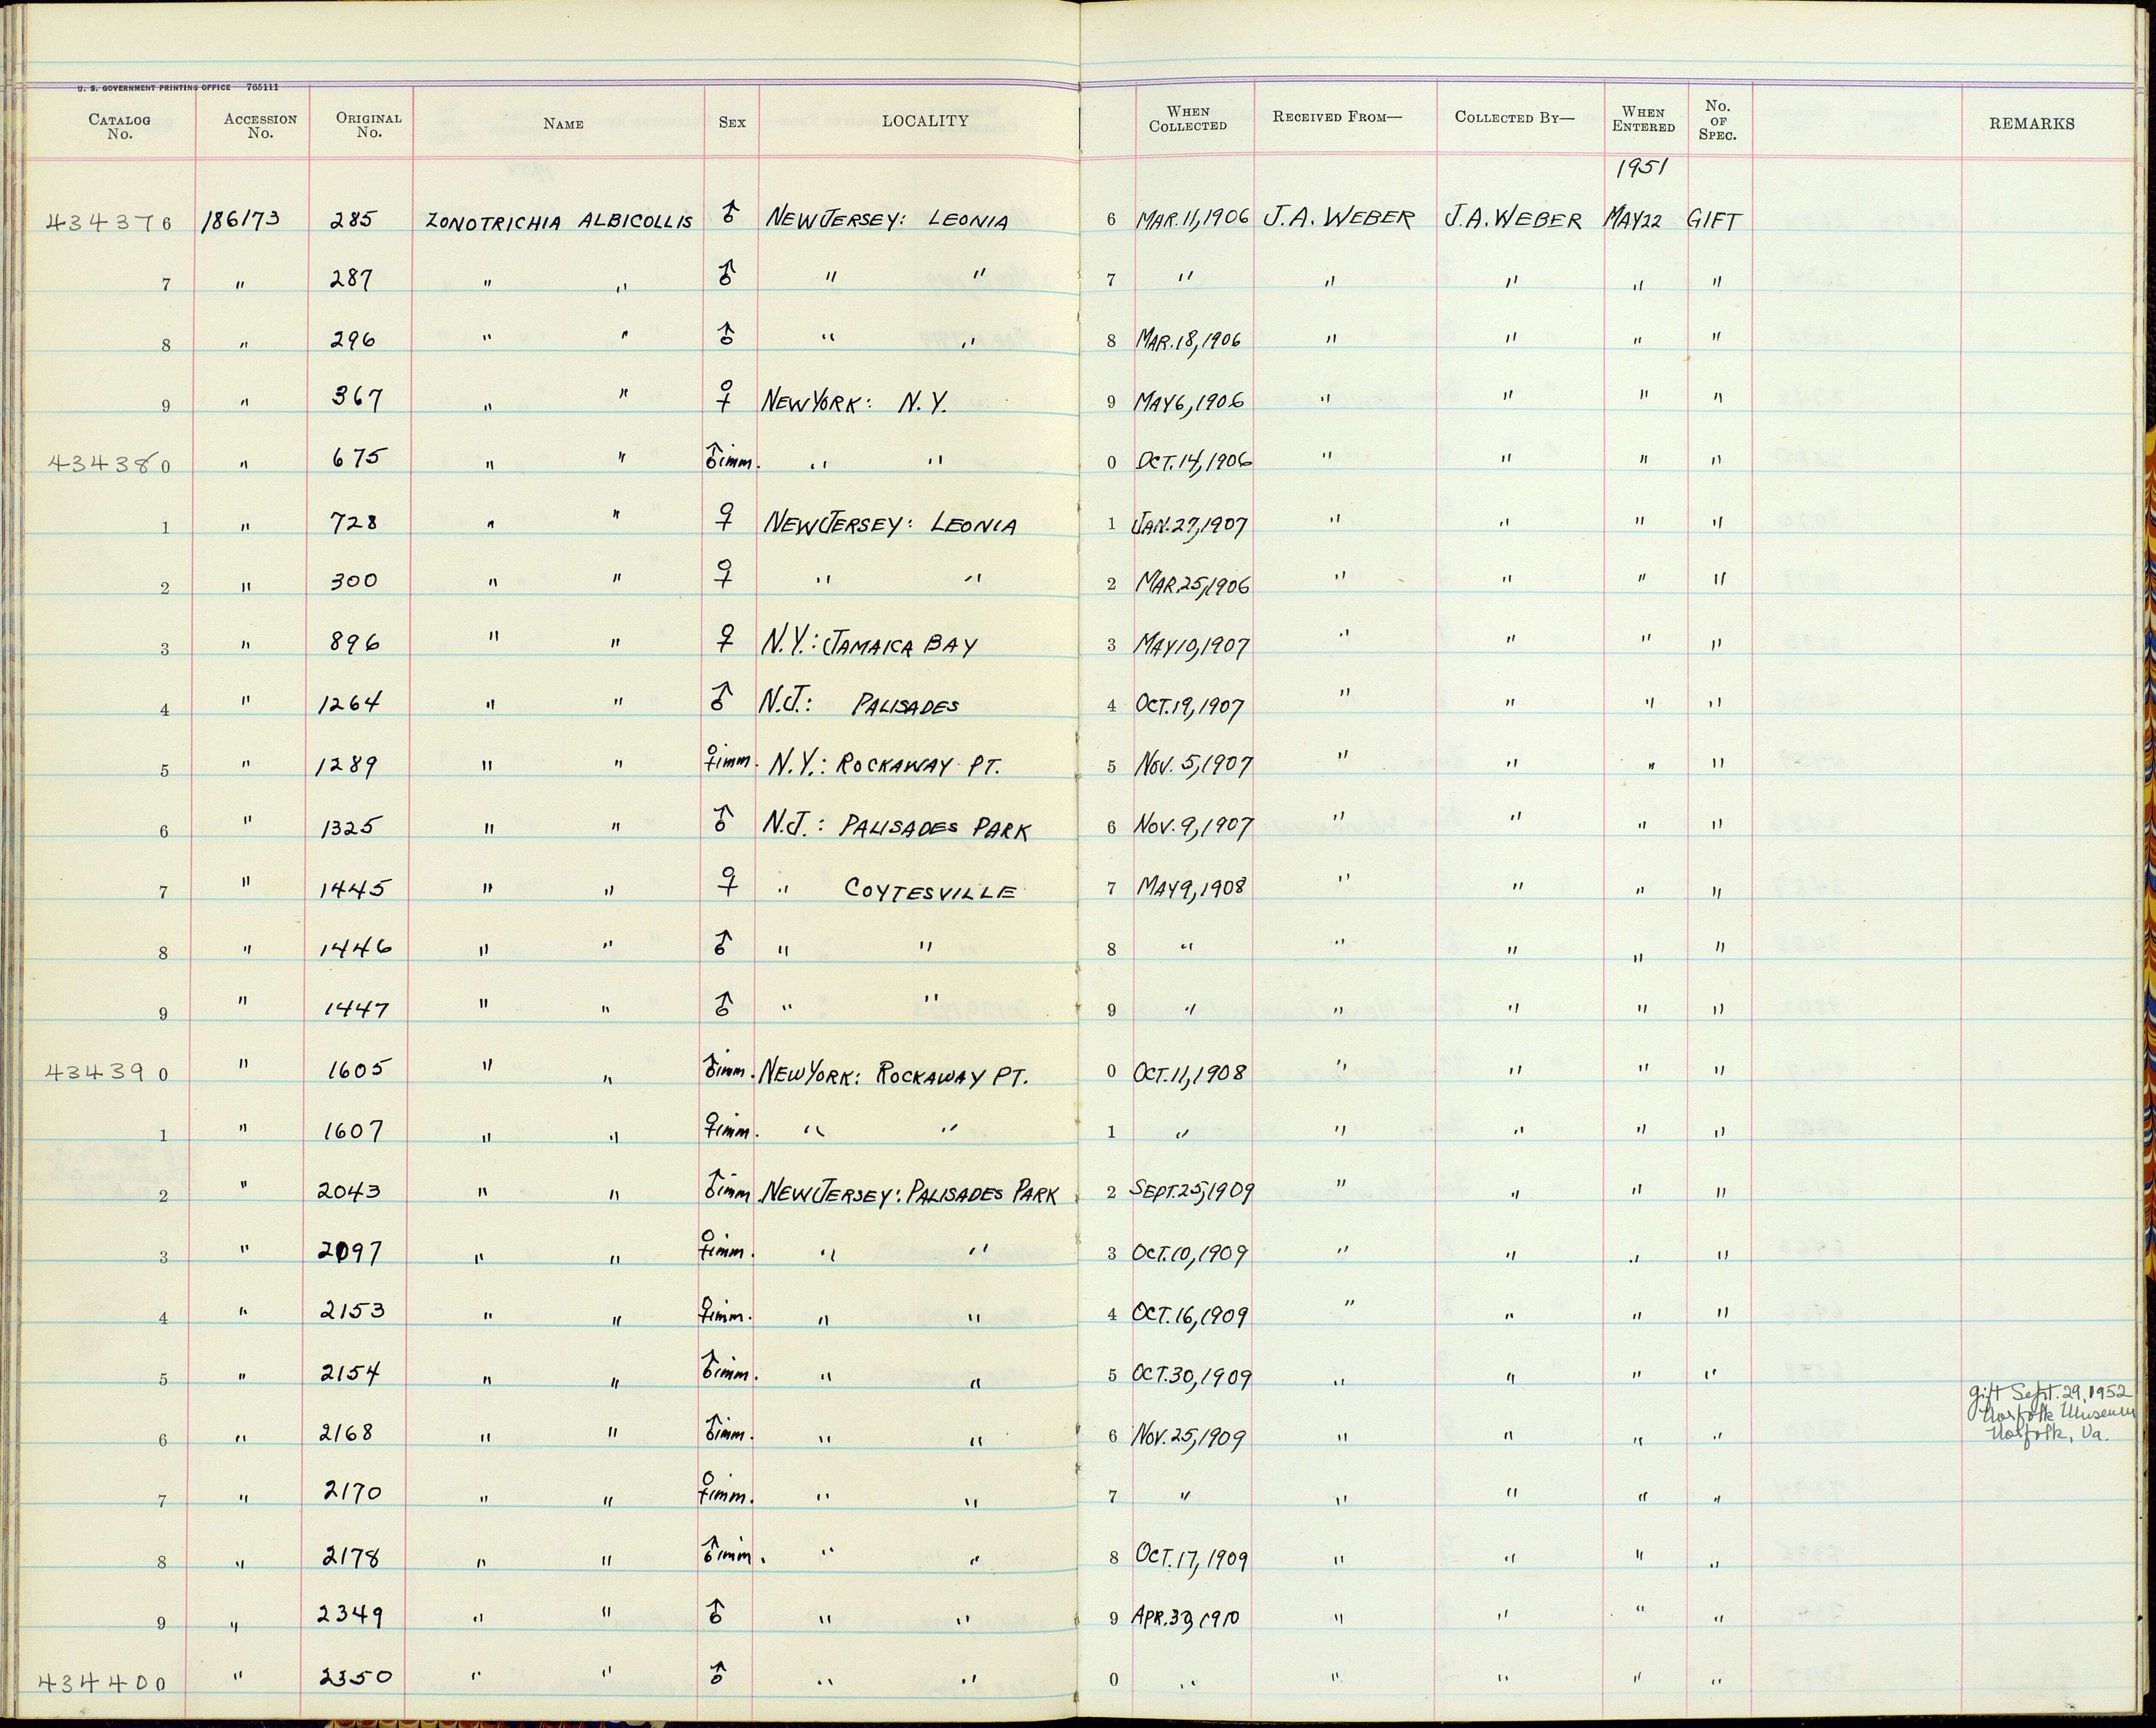 U. S. GOVERNMENT PRINTING OFFICE 765111
CATALOG No. ACCESSION No. ORIGINAL No. NAME SEX LOCALITY WHEN COLLECTED RECEIVED FROM— COLLECTED BY— WHEN ENTERED No. OF SPEC. REMARKS
1951
434376 186173 285 ZONOTRICHIA ALBICOLLIS ♂ NEW JERSEY: LEONIA 6 MAR. 11, 1906 J.A. WEBER J.A. WEBER MAY 22 GIFT
7 " 287 " " ♂ " " 7 " " " " "
8 " 296 " " ♂ " " 8 MAR. 18, 1906 " " " "
9 " 367 " " ♀ NEW YORK: N.Y. 9 MAY 6, 1906 " " " "
434380 " 675 " " ♂ imm. " " 0 OCT. 14, 1906 " " " "
1 " 728 " " ♀ NEW JERSEY: LEONIA 1 JAN. 27, 1907 " " " "
2 " 300 " " ♀ " " 2 MAR. 25, 1906 " " " "
3 " 896 " " ♀ N.Y.: JAMAICA BAY 3 MAY 19, 1907 " " " "
4 " 1264 " " ♂ N.J.: PALISADES 4 OCT. 19, 1907 " " " "
5 " 1289 " " ♀ imm. N.Y.: ROCKAWAY PT. 5 NOV. 5, 1907 " " " "
6 " 1325 " " ♂ N.J.: PALISADES PARK 6 NOV. 9, 1907 " " " "
7 " 1445 " " ♀ " COYTESVILLE 7 MAY 9, 1908 " " " "
8 " 1446 " " ♂ " " 8 " " " " "
9 " 1447 " " ♂ " " 9 " " " " "
434390 " 1605 " " ♂ imm. NEW YORK: ROCKAWAY PT. 0 OCT. 11, 1908 " " " "
1 " 1607 " " ♀ imm. " " 1 " " " " "
2 " 2043 " " ♂ imm. NEW JERSEY: PALISADES PARK 2 SEPT. 25, 1909 " " " "
3 " 2097 " " ♀ imm. " " 3 OCT. 10, 1909 " " " "
4 " 2153 " " ♀ imm. " " 4 OCT. 16, 1909 " " " "
5 " 2154 " " ♂ imm. " " 5 OCT. 30, 1909 " " " "
gift Sept. 29, 1952
Norfolk Museum
6 " 2168 " " ♂ imm. " " 6 NOV. 25, 1909 " " " " Norfolk, Va.
7 " 2170 " " ♀ imm. " " 7 " " " " "
8 " 2178 " " ♂ imm. " " 8 OCT. 17, 1909 " " " "
9 " 2349 " " ♂ " " 9 APR. 1910 " " " "
434400 " 2350 " " ♂ " " 0 " " " " "